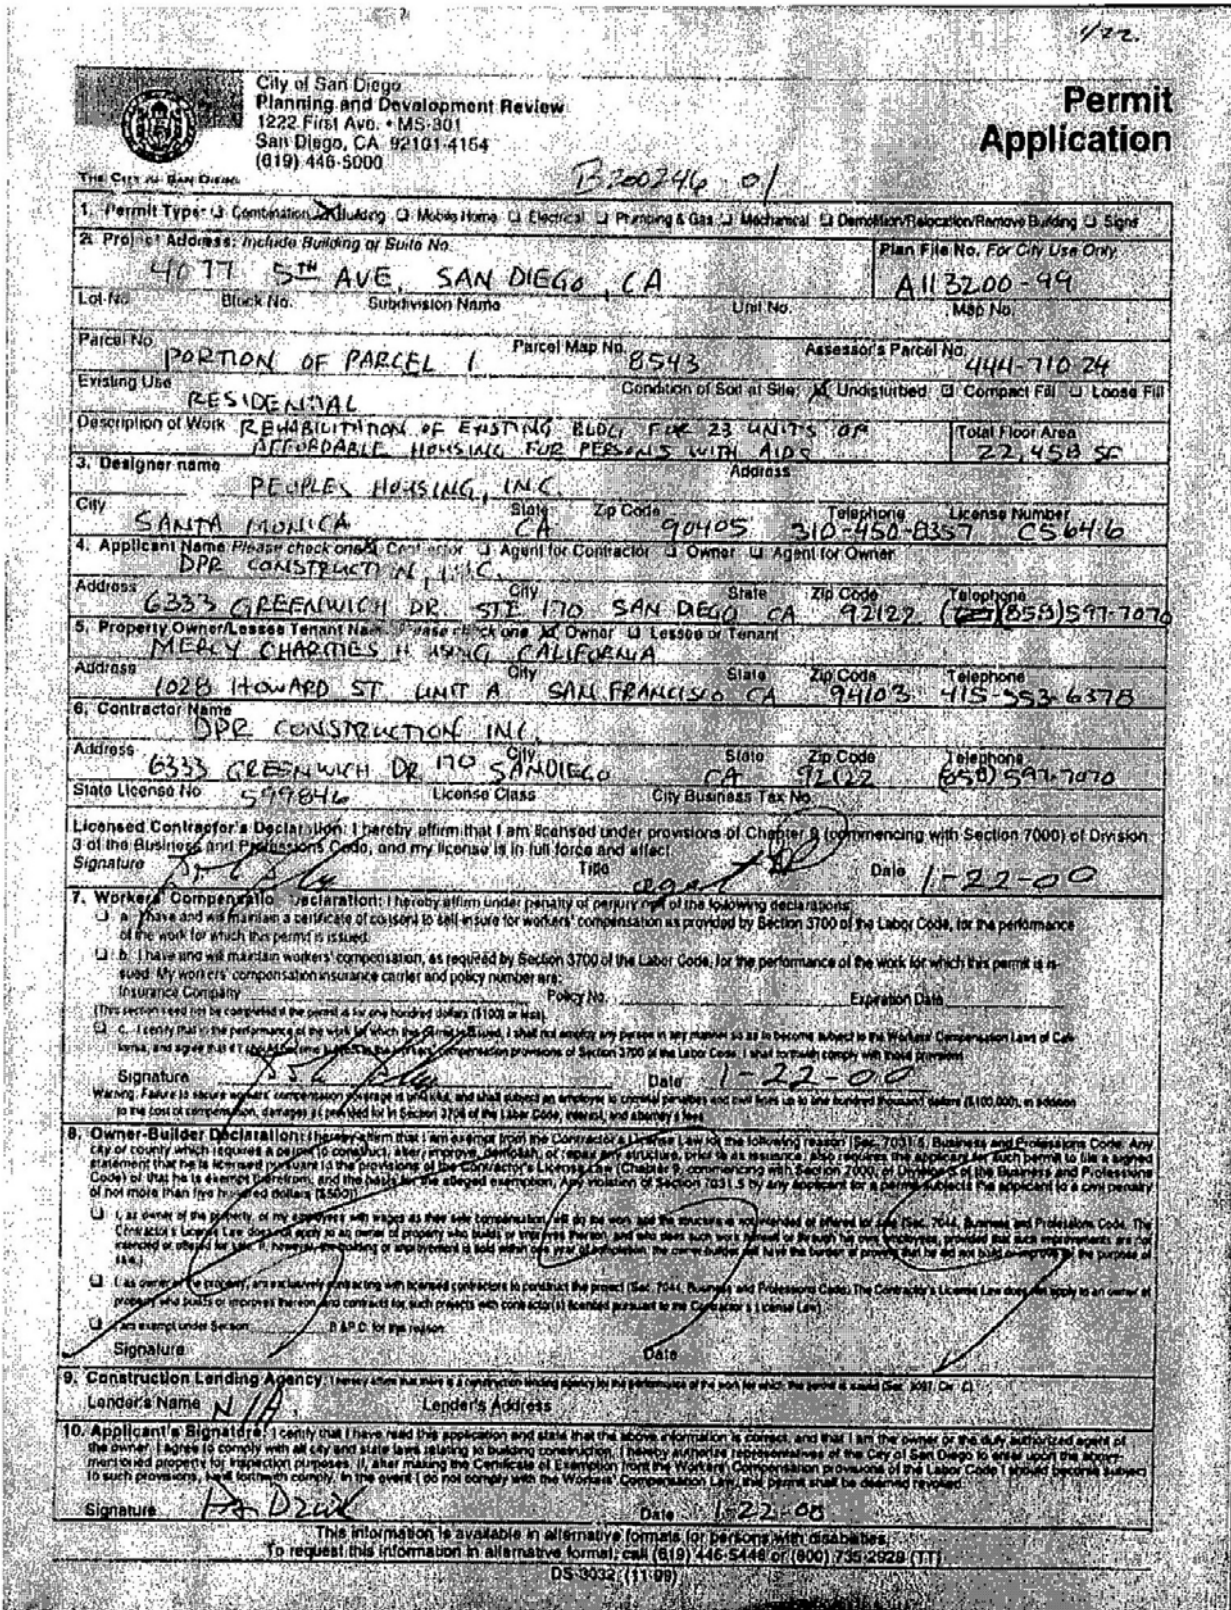 1/22.
City of San Diego
Planning and Development Review
1222 First Ave. • MS-301
San Diego, CA 92101-4154
(619) 446-5000
Permit
Application
THE CITY OF SAN DIEGO
B200246-01
1. Permit Type: ❑ Combination ❑ Building ❑ Mobile Home ❑ Electrical ❑ Plumbing & Gas ❑ Mechanical ❑ Demolition/Relocation/Remove Building ❑ Signs
2. Project Address: Include Building or Suite No. Plan File No. For City Use Only
4077 5TH AVE, SAN DIEGO, CA A113200-99
Lot No. Block No. Subdivision Name Unit No. Map No.
Parcel No. PORTION OF PARCEL 1 Parcel Map No. 8543 Assessor's Parcel No. 444-710 24
Existing Use RESIDENTIAL Condition of Soil at Site: Undisturbed ❑ Compact Fill ❑ Loose Fill
Description of Work REHABILITATION OF EXISTING BLDG FOR 23 UNITS OF Total Floor Area
AFFORDABLE HOUSING FOR PERSONS WITH AIDS 22,458 SF
3. Designer name Address
PEOPLES HOUSING, INC.
City State Zip Code Telephone License Number
SANTA MONICA CA 90405 310-450-8357 C5646
4. Applicant Name Please check one Contractor ❑ Agent for Contractor ❑ Owner ❑ Agent for Owner
DPR CONSTRUCTION, INC.
Address City State Zip Code Telephone
6333 GREENWICH DR. STE 170 SAN DIEGO CA 92122 (858) 597-7070
5. Property Owner/Lessee Tenant Name Please check one Owner ❑ Lessee or Tenant
MERCY CHARITIES HOUSING CALIFORNIA
Address City State Zip Code Telephone
1028 HOWARD ST UNIT A SAN FRANCISCO CA 94103 415-553-6378
6. Contractor Name
DPR CONSTRUCTION INC.
Address City State Zip Code Telephone
6333 GREENWICH DR 170 SAN DIEGO CA 92122 (858) 597-7070
State License No 599846 License Class City Business Tax No.
Licensed Contractor's Declaration: I hereby affirm that I am licensed under provisions of Chapter 9 (commencing with Section 7000) of Division
3 of the Business and Professions Code, and my license is in full force and effect.
Signature Title agent Date 1-22-00
7. Workers' Compensation Declaration: I hereby affirm under penalty of perjury one of the following declarations:
❑ a. I have and will maintain a certificate of consent to self-insure for workers' compensation as provided by Section 3700 of the Labor Code, for the performance
of the work for which this permit is issued.
❑ b. I have and will maintain workers' compensation, as required by Section 3700 of the Labor Code, for the performance of the work for which this permit is is-
sued. My workers' compensation insurance carrier and policy number are:
Insurance Company Policy No. Expiration Date
(This section need not be completed if the permit is for one hundred dollars ($100) or less).
❑ c. I certify that in the performance of the work for which this permit is issued, I shall not employ any person in any manner so as to become subject to the Workers' Compensation Laws of Cali-
fornia, and agree that if I should become subject to the workers' compensation provisions of Section 3700 of the Labor Code, I shall forthwith comply with those provisions
Signature Date 1-22-00
Warning: Failure to secure workers' compensation coverage is unlawful, and shall subject an employer to criminal penalties and civil fines up to one hundred thousand dollars ($100,000), in addition
to the cost of compensation, damages as provided for in Section 3706 of the Labor Code, interest, and attorney's fees
8. Owner-Builder Declaration: I hereby affirm that I am exempt from the Contractor's License Law for the following reason (Sec. 7031.5, Business and Professions Code. Any
city or county which requires a permit to construct, alter, improve, demolish, or repair any structure, prior to its issuance, also requires the applicant for such permit to file a signed
statement that he is licensed pursuant to the provisions of the Contractor's License Law (Chapter 9, commencing with Section 7000, of Division 3 of the Business and Professions
Code) or that he is exempt therefrom, and the basis for the alleged exemption, Any violation of Section 7031.5 by any applicant for a permit subjects the applicant to a civil penalty
of not more than five hundred dollars ($500))
❑ I, as owner of the property, or my employees with wages as their sole compensation, will do the work and the structure is not intended or offered for sale (Sec. 7044, Business and Professions Code. The
Contractor's License Law does not apply to an owner of property who builds or improves thereon, and who does such work himself or through his own employees, provided that such improvements are not
intended or offered for sale. If, however, the building or improvement is sold within one year of completion, the owner-builder will have the burden of proving that he did not build or improve for the purpose of
sale.)
❑ I, as owner of the property, am exclusively contracting with licensed contractors to construct the project (Sec. 7044, Business and Professions Code. The Contractor's License Law does not apply to an owner of
property who builds or improves thereon, and contracts for such projects with contractor(s) licensed pursuant to the Contractor's License Law)
❑ I am exempt under Section B & P.C. for this reason
Signature Date
9. Construction Lending Agency: I hereby affirm that there is a construction lending agency for the performance of the work for which this permit is issued (Sec. 3097, Civ. C.)
Lender's Name N/A Lender's Address
10. Applicant's Signature: I certify that I have read this application and state that the above information is correct, and that I am the owner or the duly authorized agent of
the owner. I agree to comply with all city and state laws relating to building construction. I hereby authorize representatives of the City of San Diego to enter upon the above-
mentioned property for inspection purposes. If, after making the Certificate of Exemption from the Workers' Compensation provisions of the Labor Code I should become subject
to such provisions, I will forthwith comply. In the event I do not comply with the Workers' Compensation Law, this permit shall be deemed revoked.
Signature Date 1-22-00
This information is available in alternative formats for persons with disabilities.
To request this information in alternative format, call (619) 446-5446 or (800) 735-2929 (TT)
DS-3032 (11-99)